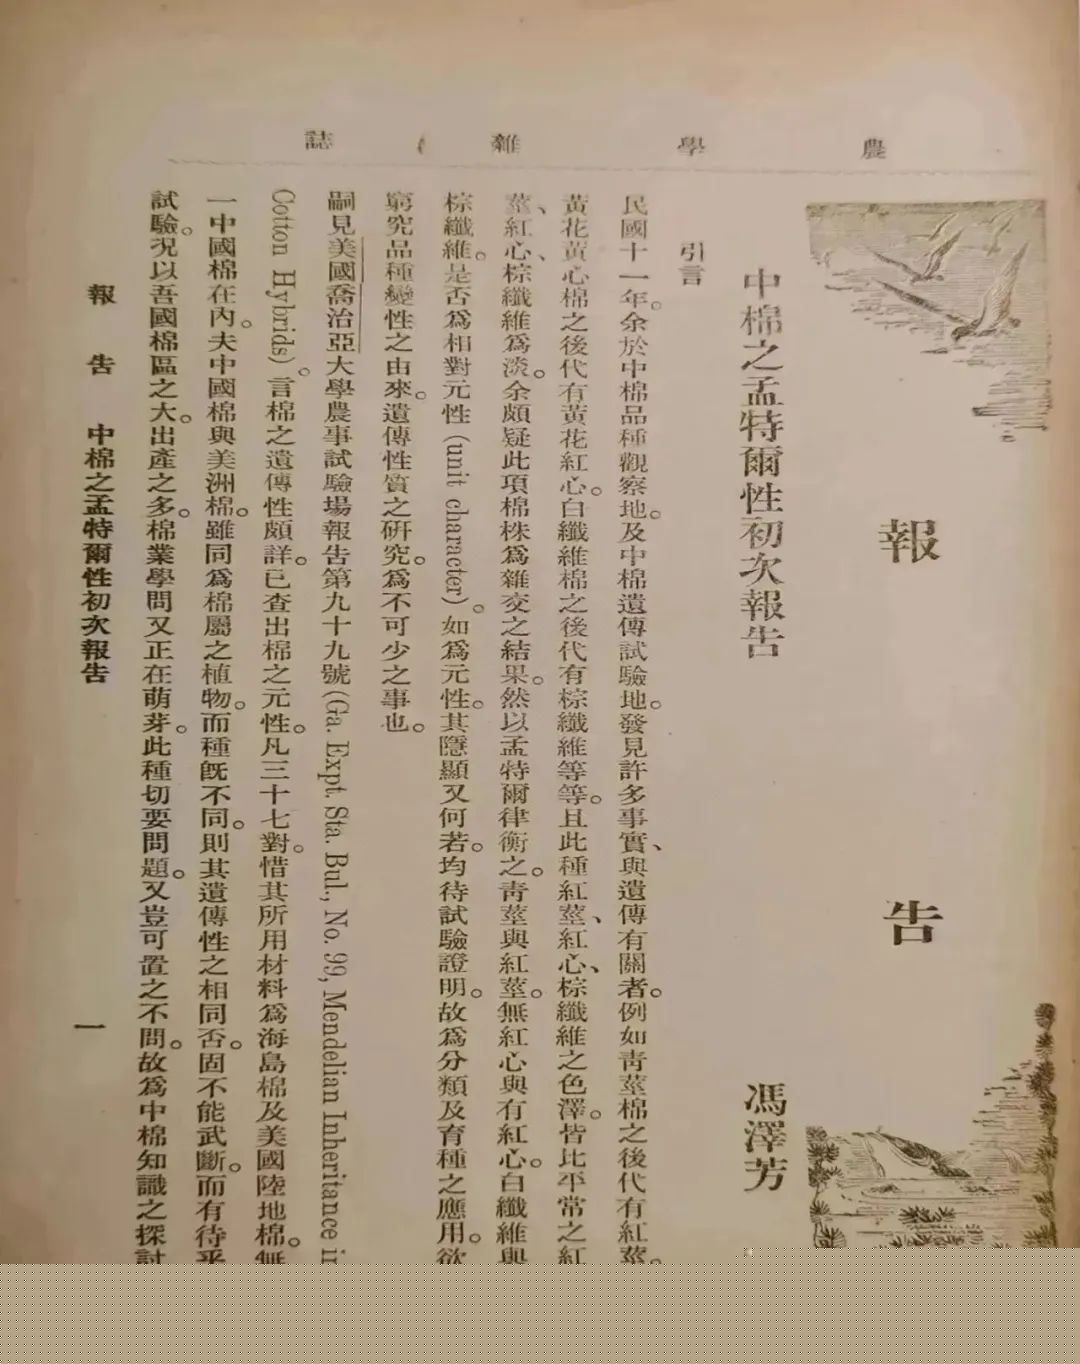 農學雜誌
報告
中棉之孟特爾性初次報告 馮澤芳
引言
民國十一年。余於中棉品種觀察地。及中棉遺傳試驗地。發見許多事實、與遺傳有關者。例如青莖棉之後代有紅莖。
黃花黃心棉之後代有黃花紅心。白纖維棉之後代有棕纖維等等。且此種紅莖、紅心、棕纖維之色澤。皆比平常之紅
莖、紅心、棕纖維爲淡。余頗疑此項棉株爲雜交之結果。然以孟特爾律衡之。青莖與紅莖。無紅心與有紅心。白纖維與
棕纖維。是否爲相對元性(unit character)。如爲元性。其隱顯又何若。均待試驗證明。故爲分類及育種之應用。欲
窮究品種變性之由來。遺傳性質之研究。爲不可少之事也。
嗣見美國喬治亞大學農事試驗場報告第九十九號(Ga. Expt. Sta. Bul., No. 99, Mendelian Inheritance in
Cotton Hybrids)。言棉之遺傳性頗詳。已查出棉之元性。凡三十七對。惜其所用材料爲海島棉及美國陸地棉。無
一中國棉在內。夫中國棉與美洲棉。雖同爲棉屬之植物。而種旣不同。則其遺傳性之相同否。固不能武斷。而有待乎
試驗。況以吾國棉區之大。出產之多。棉業學問又正在萌芽。此種切要問題。又豈可置之不問。故爲中棉知識之探討
報告 中棉之孟特爾性初次報告 一